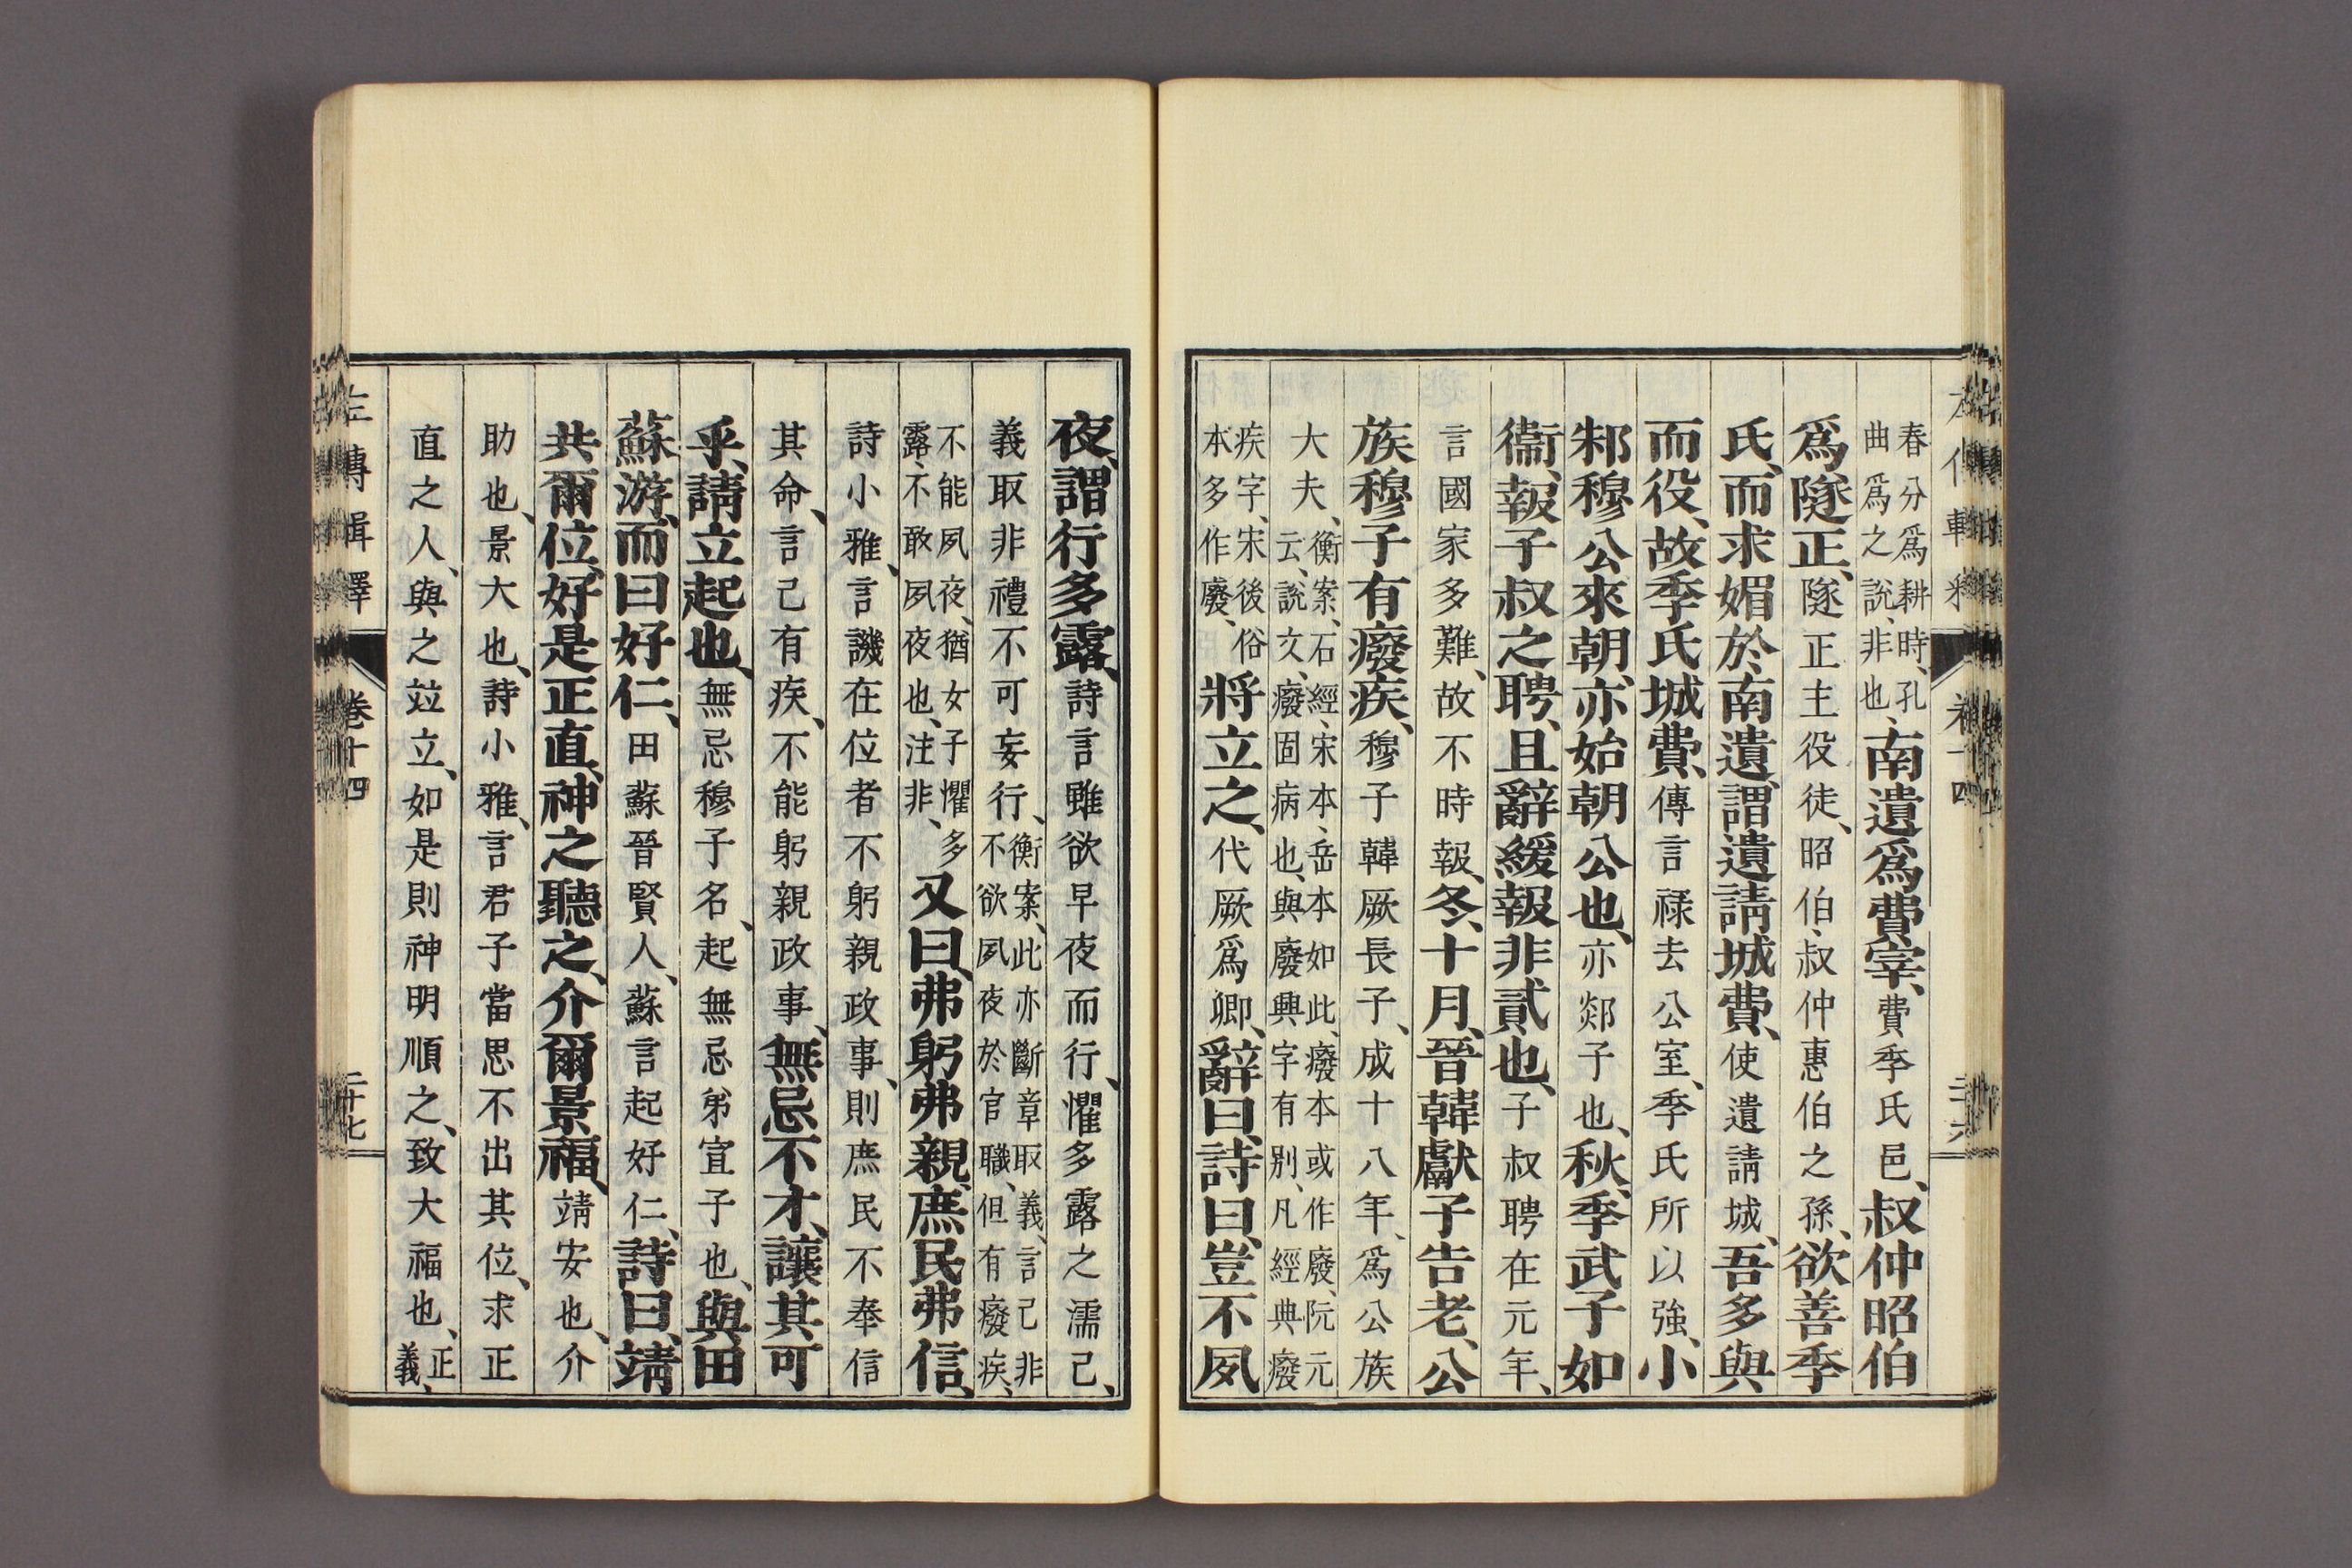 春分爲耕時、孔
曲爲之說、非也、
南遺爲費宰、費季氏邑、叔仲昭伯
爲隧正、隧正主役徒、昭伯、叔仲惠伯之孫、欲善季
氏、而求媚於南遺、謂遺請城費、使遺請城、吾多與
而役、故季氏城費、傳言祿去公室、季氏所以強、小
邾穆公來朝、亦始朝公也、亦郯子也、秋、季武子如
衞、報子叔之聘、且辭緩報非貳也、子叔聘在元年、
言國家多難、故不時報、冬、十月、晉韓獻子告老、公
族穆子有癈疾、穆子韓厥長子、成十八年、爲公族
大夫、
衡案、石經、宋本、岳本如此、癈本或作廢、阮元
云、說文、癈固病也、與廢興字有別、凡經典癈
疾字、宋後俗
本多作廢、
將立之、代厥爲卿、辭曰、詩曰、豈不夙
夜、謂行多露、詩言雖欲早夜而行、懼多露之濡己、
義取非禮不可妄行、
衡案、此亦斷章取義、言己非
不欲夙夜於官職、但有癈疾、
不能夙夜、猶女子懼多
露、不敢夙夜也、注非、
又曰、弗躬弗親、庶民弗信、
詩小雅、言譏在位者不躬親政事、則庶民不奉信
其命、言己有疾、不能躬親政事、無忌不才、讓其可
乎、請立起也、無忌穆子名、起無忌弟宣子也、與田
蘇游、而曰好仁、田蘇晉賢人、蘇言起好仁、詩曰、靖
共爾位、好是正直、神之聽之、介爾景福、靖安也、介
助也、景大也、詩小雅、言君子當思不出其位、求正
直之人、與之竝立、如是則神明順之、致大福也、
正
義、
左傳輯釋
卷十四
二十七